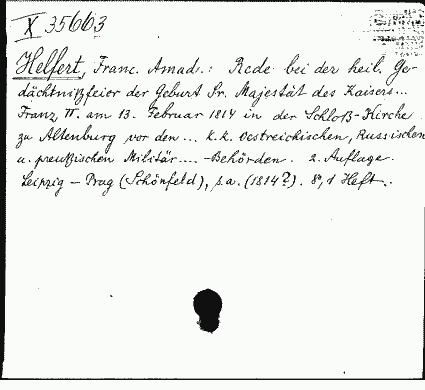 X 35663
Helfert, Franc. Amad.: Rede bei der heil. Ge-
dächtnißfeier der Geburt Sr. Majestät des Kaisers...
Franz II. am 13. Februar 1814 in der Schloß-Kirche
zu Altenburg vor den ... k.k. oestreichischen, Russischen
u. preußischen Militär.... -Behörden. 2. Auflage.
Leipzig – Prag (Schönfeld), s.a. (1814?). 8°, 1 Heft.